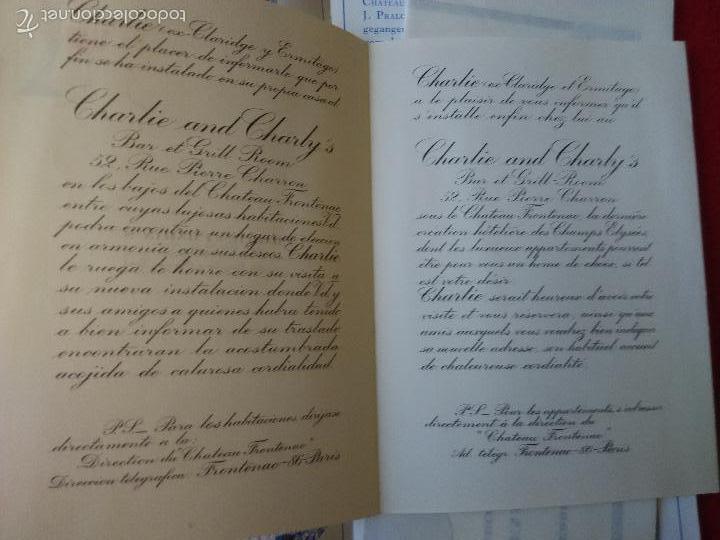 todocoleccion
CHATEAU
J. PRALO
gegangen
Charlie (ex-Claridge y Ermitage)
tiene el placer de informarle que por
fin se ha instalado en su propia casa el
Charlie and Charly's
Bar et Grill Room
52, Rue Pierre Charron
en los bajos del Chateau Frontenac
entre cuyas lujosas habitaciones Vd.
podra encontrar un hogar de eleccion
en armonia con sus deseos. Charlie
le ruega le honre con su visita a
su nueva instalacion donde Vd. y
sus amigos a quienes habra tenido
a bien informar de su traslado
encontraran la acostumbrada
acojida de calurosa cordialidad.
P.S_ Para las habitaciones dirijase
directamente a la:
Direction du "Chateau Frontenac"
Direccion telegrafica: Frontenac-86-Paris
Charlie (ex-Claridge et Ermitage)
a le plaisir de vous informer qu'il
s'installe enfin chez lui au
Charlie and Charly's
Bar et Grill-Room
52, Rue Pierre Charron
sous le Château Frontenac, la dernière
creation hôtelière des Champs Elysées,
dont les luxueux appartements peuvent
être pour vous un home de choix, si tel
est votre désir.
Charlie serait heureux d'avoir votre
visite et vous reservera, ainsi qu'aux
amis auxquels vous voudrez bien indiquer
sa nouvelle adresse, son habituel accueil
de chaleureuse cordialité.
P.S_ Pour les appartements, s'adresser
directement à la direction du
"Chateau Frontenac"
Ad. télégr. Frontenac-86-Paris